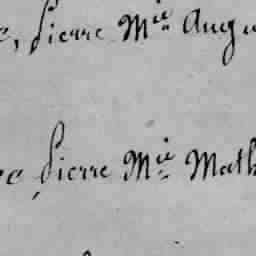 e, pierre M.ie Augu
ee pierre M.ie Math